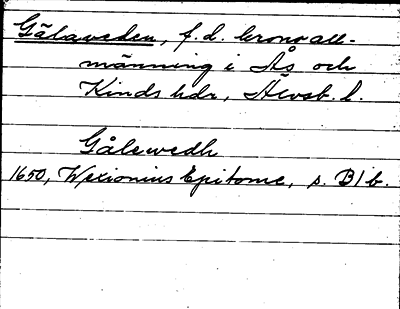 Gälaveden, f.d. kronoall-
männing i Ås och
Kinds hdr, Älvsb. l.
Gålewedh
1650, Wexionius Epitome, s. B1b.